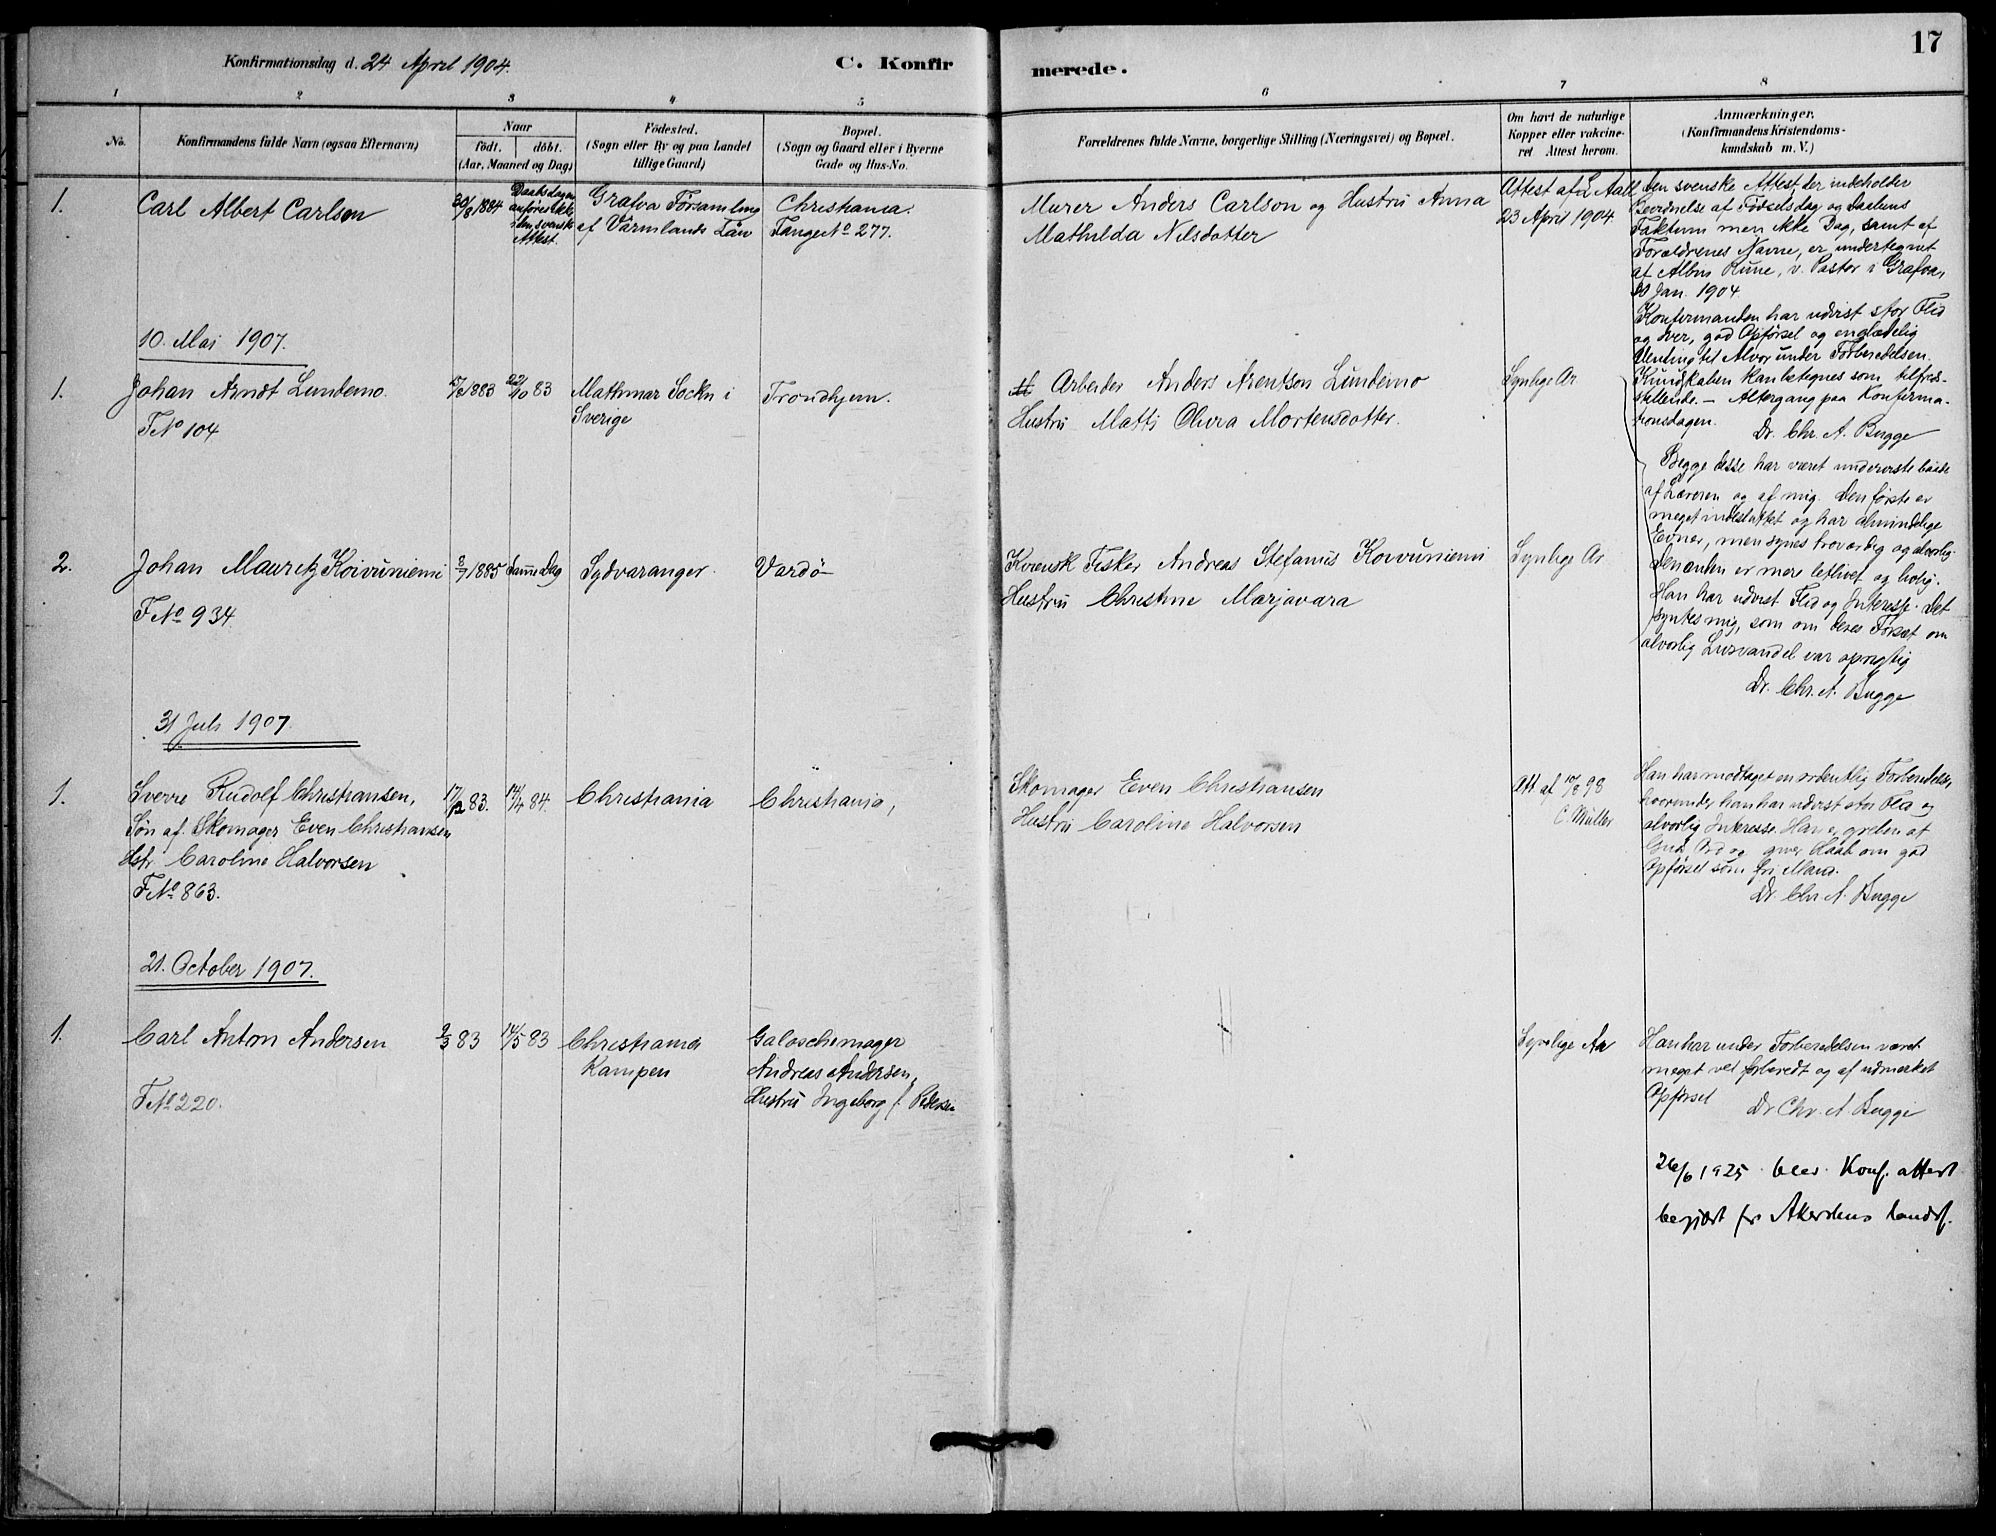 17
Konfirmationsdag d. 24 April 1904.
C. Konfirmerede.
1 2 3 4 5 6 7 8
No.
Konfirmandens fulde Navn (ogsaa Efternavn)
Naar
født. døbt.
(Aar, Maaned og Dag)
Fødested.
(Sogn eller By og paa Landet
tillige Gaard)
Bopæl.
(Sogn og Gaard eller i Byerne
Gade og Hus-No.
Forældrenes fulde Navne, borgerlige Stilling (Næringsvei) og Bopæl.
Om havt de naturlige
Kopper eller vakcine-
ret Attest herom.
Anmærkninger.
(Konfirmandens Kristendoms-
kundskab m. V.)
1.
Carl Albert Carlsen
30/8 1884
Daabsdagen
anføres ikke
i den svenske
Attest.
Grafva Församling
af Värmlands Län
Christiania.
Fange No 277.
Murer Anders Carlson og Hustru Anna
Mathilda Nilsdotter
Attest af Aall
23 April 1904
Den svenske Attest der indeholder
Bevidnelse af Fødselsdag og Daabens
Faktum men ikke Dag, samt af
Forældrenes Navne, er undertegnet
af Albin Rune, v. Pastor i Grafva,
Jan. 1904.
Konfirmanden har udvist stor Flid
og Iver, god Opførsel og en glædelig
Vending til Alvor under Forberedelsen.
Kundskaben kan betegnes som tilfreds-
stillende. – Altergang paa Konfirma-
tionsdagen.
Dr. Chr. A. Bugge
10. Mai 1907.
1.
Johan Arndt Lundemo.
F No 104
1883
22/10 83
Mathmar Sockn i
Sverige
Trondhjem.
Arbeider Anders Arentson Lundemo
Hustru Matti Oliva Mortensdatter.
Synlige Ar
Begge disse har været underviste baade
af Læreren og af mig. Den første er
meget indesluttet og har almindelige
Evner, men synes troværdig og alvorlig.
Den anden er mere letlivet og livlig.
Han har udvist Flid og Interesse. Det
syntes mig, som om deres Forsæt om
alvorlig Livsvandel var oprigtig
Dr. Chr. A. Bugge
2.
Johan Mauretz Koivuniemi
F No 934
8/7 1885
Samme Dag
Sydvaranger.
Vardö
Kvensk Fisker Andreas Stefanus Koivuniemi
Hustru Christine Marjavara
Synlige Ar
31 Juli 1907.
1.
Sverre Rudolf Christiansen,
Søn af Skomager Even Christiansen
Hstr. Caroline Halvorsen
F No 863.
17/12 83.
14/4 84.
Christiania
Christiania,
Skomager Even Christiansen
Hustru Caroline Halvorsen
Att af 10/8 98
C. Müller
Han har modtaget en ordentlig Forberedelse,
hvorunder han har udvist stor Flid og
alvorlig Interesse. Han er greben af
Guds Ord og giver Haab om god
Opførsel som fri Mand.
Dr. Chr. A. Bugge
21. October 1907.
1.
Carl Anton Andersen
F No 220.
9/3 83
14/5 83
Christiania
Kampen
Galoschemager
Andreas Andersen,
Hustru Ingeborg f. Pedersen
Synlige Ar
Han har under Forberedelsen været
meget vel forberedt og af udmerket
Opførsel
Dr Chr. A. Bugge
26/6 1925 blev Konf. attest
begjært fr Akershus landsf.